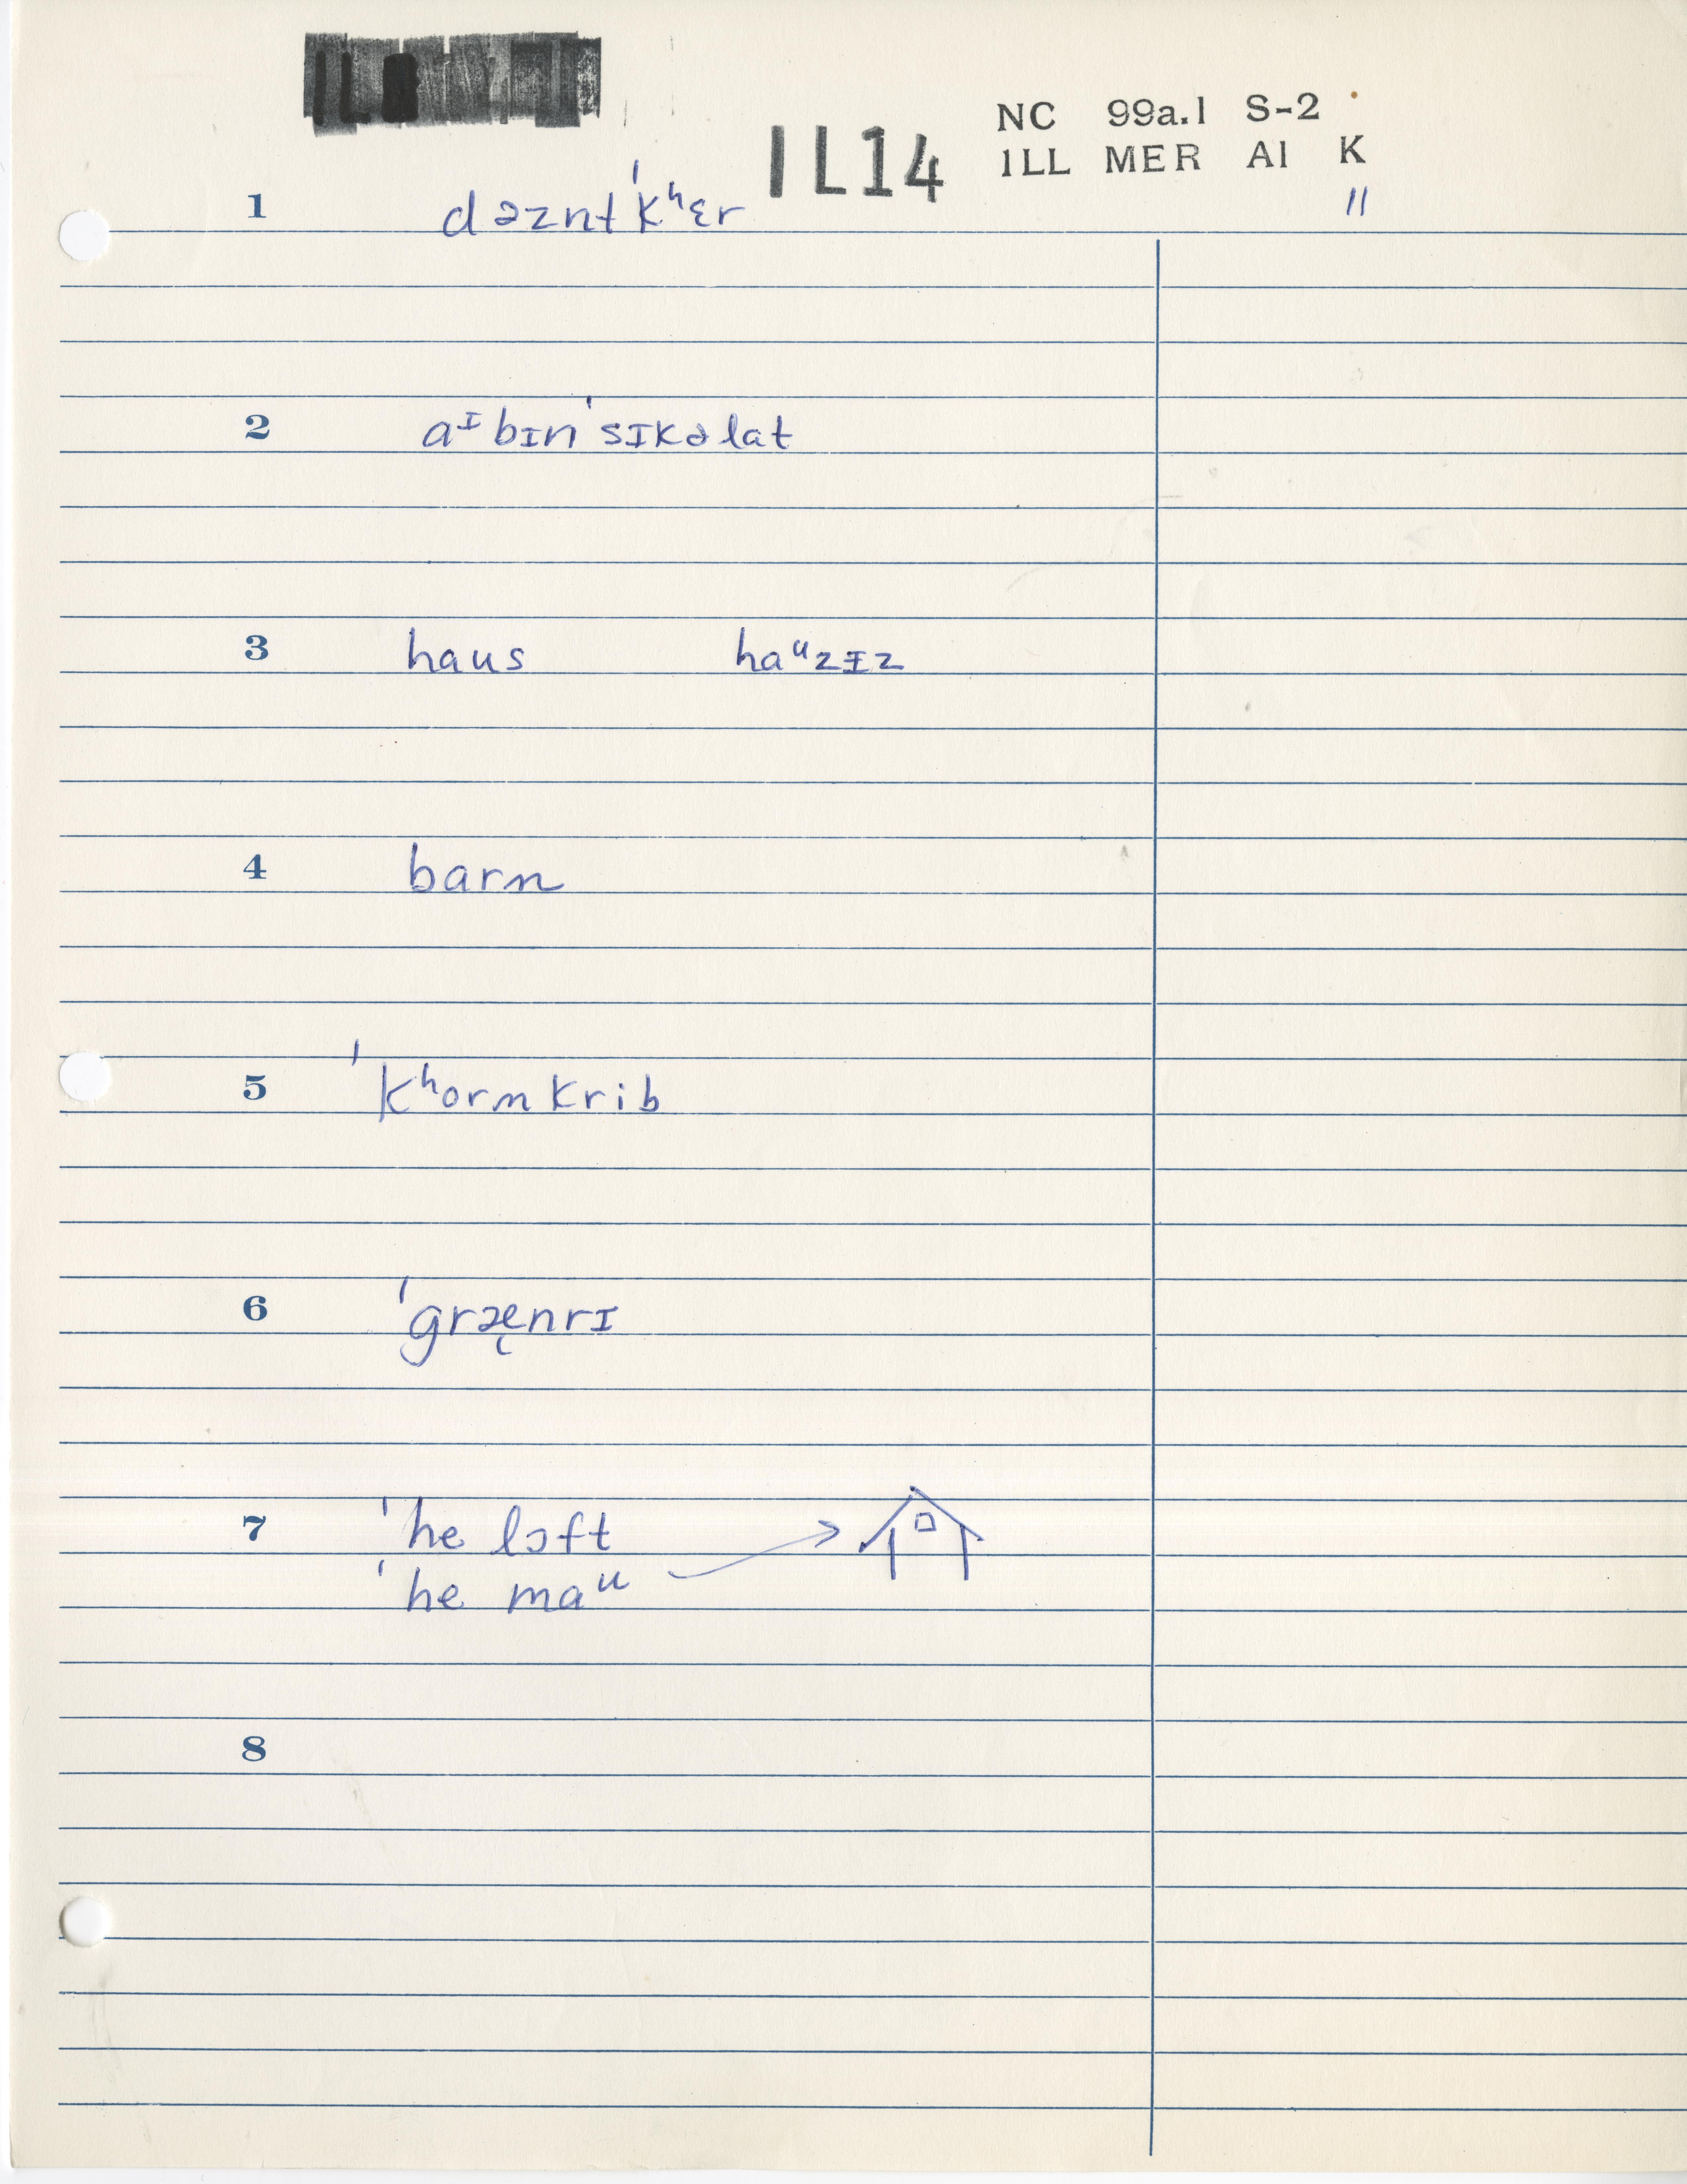 NC 99a.1 S-2
IL14
ILL MER A1 K
11
1 dəznt ˈkʰɛr
2 aᶦ bɪn ˈsɪkəlat
3 haus haᵘzɪz
4 barn
5 ˈkʰorn krib
6 ˈgræ̨nrɪ
7 ˈhe lɔft
ˈhe maᵘ
8